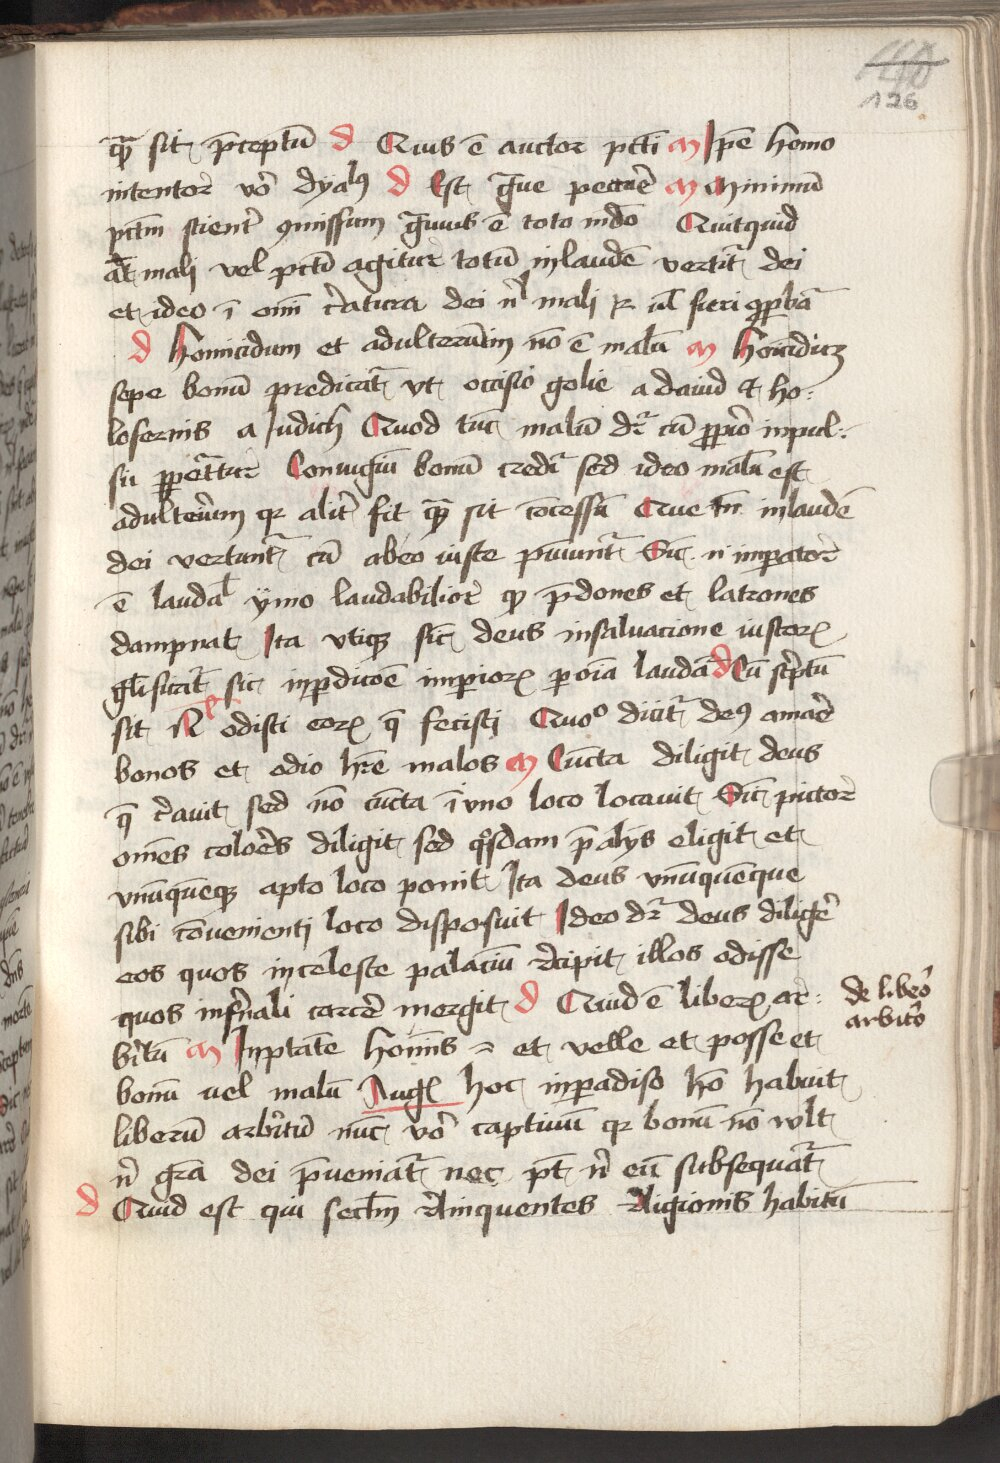 126
qua sit p̄ceptū d Quis ē auctor pcti m Ipē homo
intentor vo dyalꝰ d Est gͣue peccare m Minimū
pctm scient' ꝯmissum gͣuius ē toto mdo Quitquid
at mali vel pctī agitur totū in laudē vertitͬ dei
et ideo ī omi creatura dei nl mali fieri ꝓbat̄
d Homicidium et adulterium nō ē malū m Homicidiū
sepe bonū predicatͬ vt occisio golie a dauid et ho:
lofernis a Judich Quod tūc malū drͬ cū ꝓpio inpul:
su ꝑpetͣtur Coniugiū bonū creditͬ sed ideo malū est
adulteriūm qr alit' fit qͣ sit cōcessū Que tn̄ in laudē
dei vertuntͬ cū ab eo iuste puniuntͬ Sic n̄ imperator
ē laudal ymo laudabilior qͥ p̄dones et latrones
dampnat Ita vtiqꝫ sic deus in saluacione iustorꝫ
glificatͬ sic in ꝑdicōe impiorꝫ ꝑ oīa laudatͬ d Cū scͥptū
sit Nl odisti eorꝫ q̄ fecisti Quoͦ dicitͬ deꝰ amare
bonos et odio hr̄e malos m Cūcta diligit deus
q̄ creauit sed nō cūcta ī vno loco locauit Sic pictor
omēs colores diligit sed qͦsdam p̄ alijs eligit et
vnūquēqꝫ apto loco ponit Ita deus vnūquēque
sibi cōuenienti loco disposuit Ideo drͬ deus diligere
eos quos in celeste palaciū recipit illos odisse
quos infernali carcere mergit d Quid ē liberꝫ ar:
de libero
arbitrio
bitriū m In ptāte hominis = et velle et posse et
bonū uel malū Augꝫ hoc in paradiso hō habuit
liberū arbitriū nūc vo captiuū qr bonū nō wlt
n̄ grā dei p̄ueniatͬ nec pt n̄ eū subsequatͬ
d Quid est qui seclm relinquentes religionis habitū